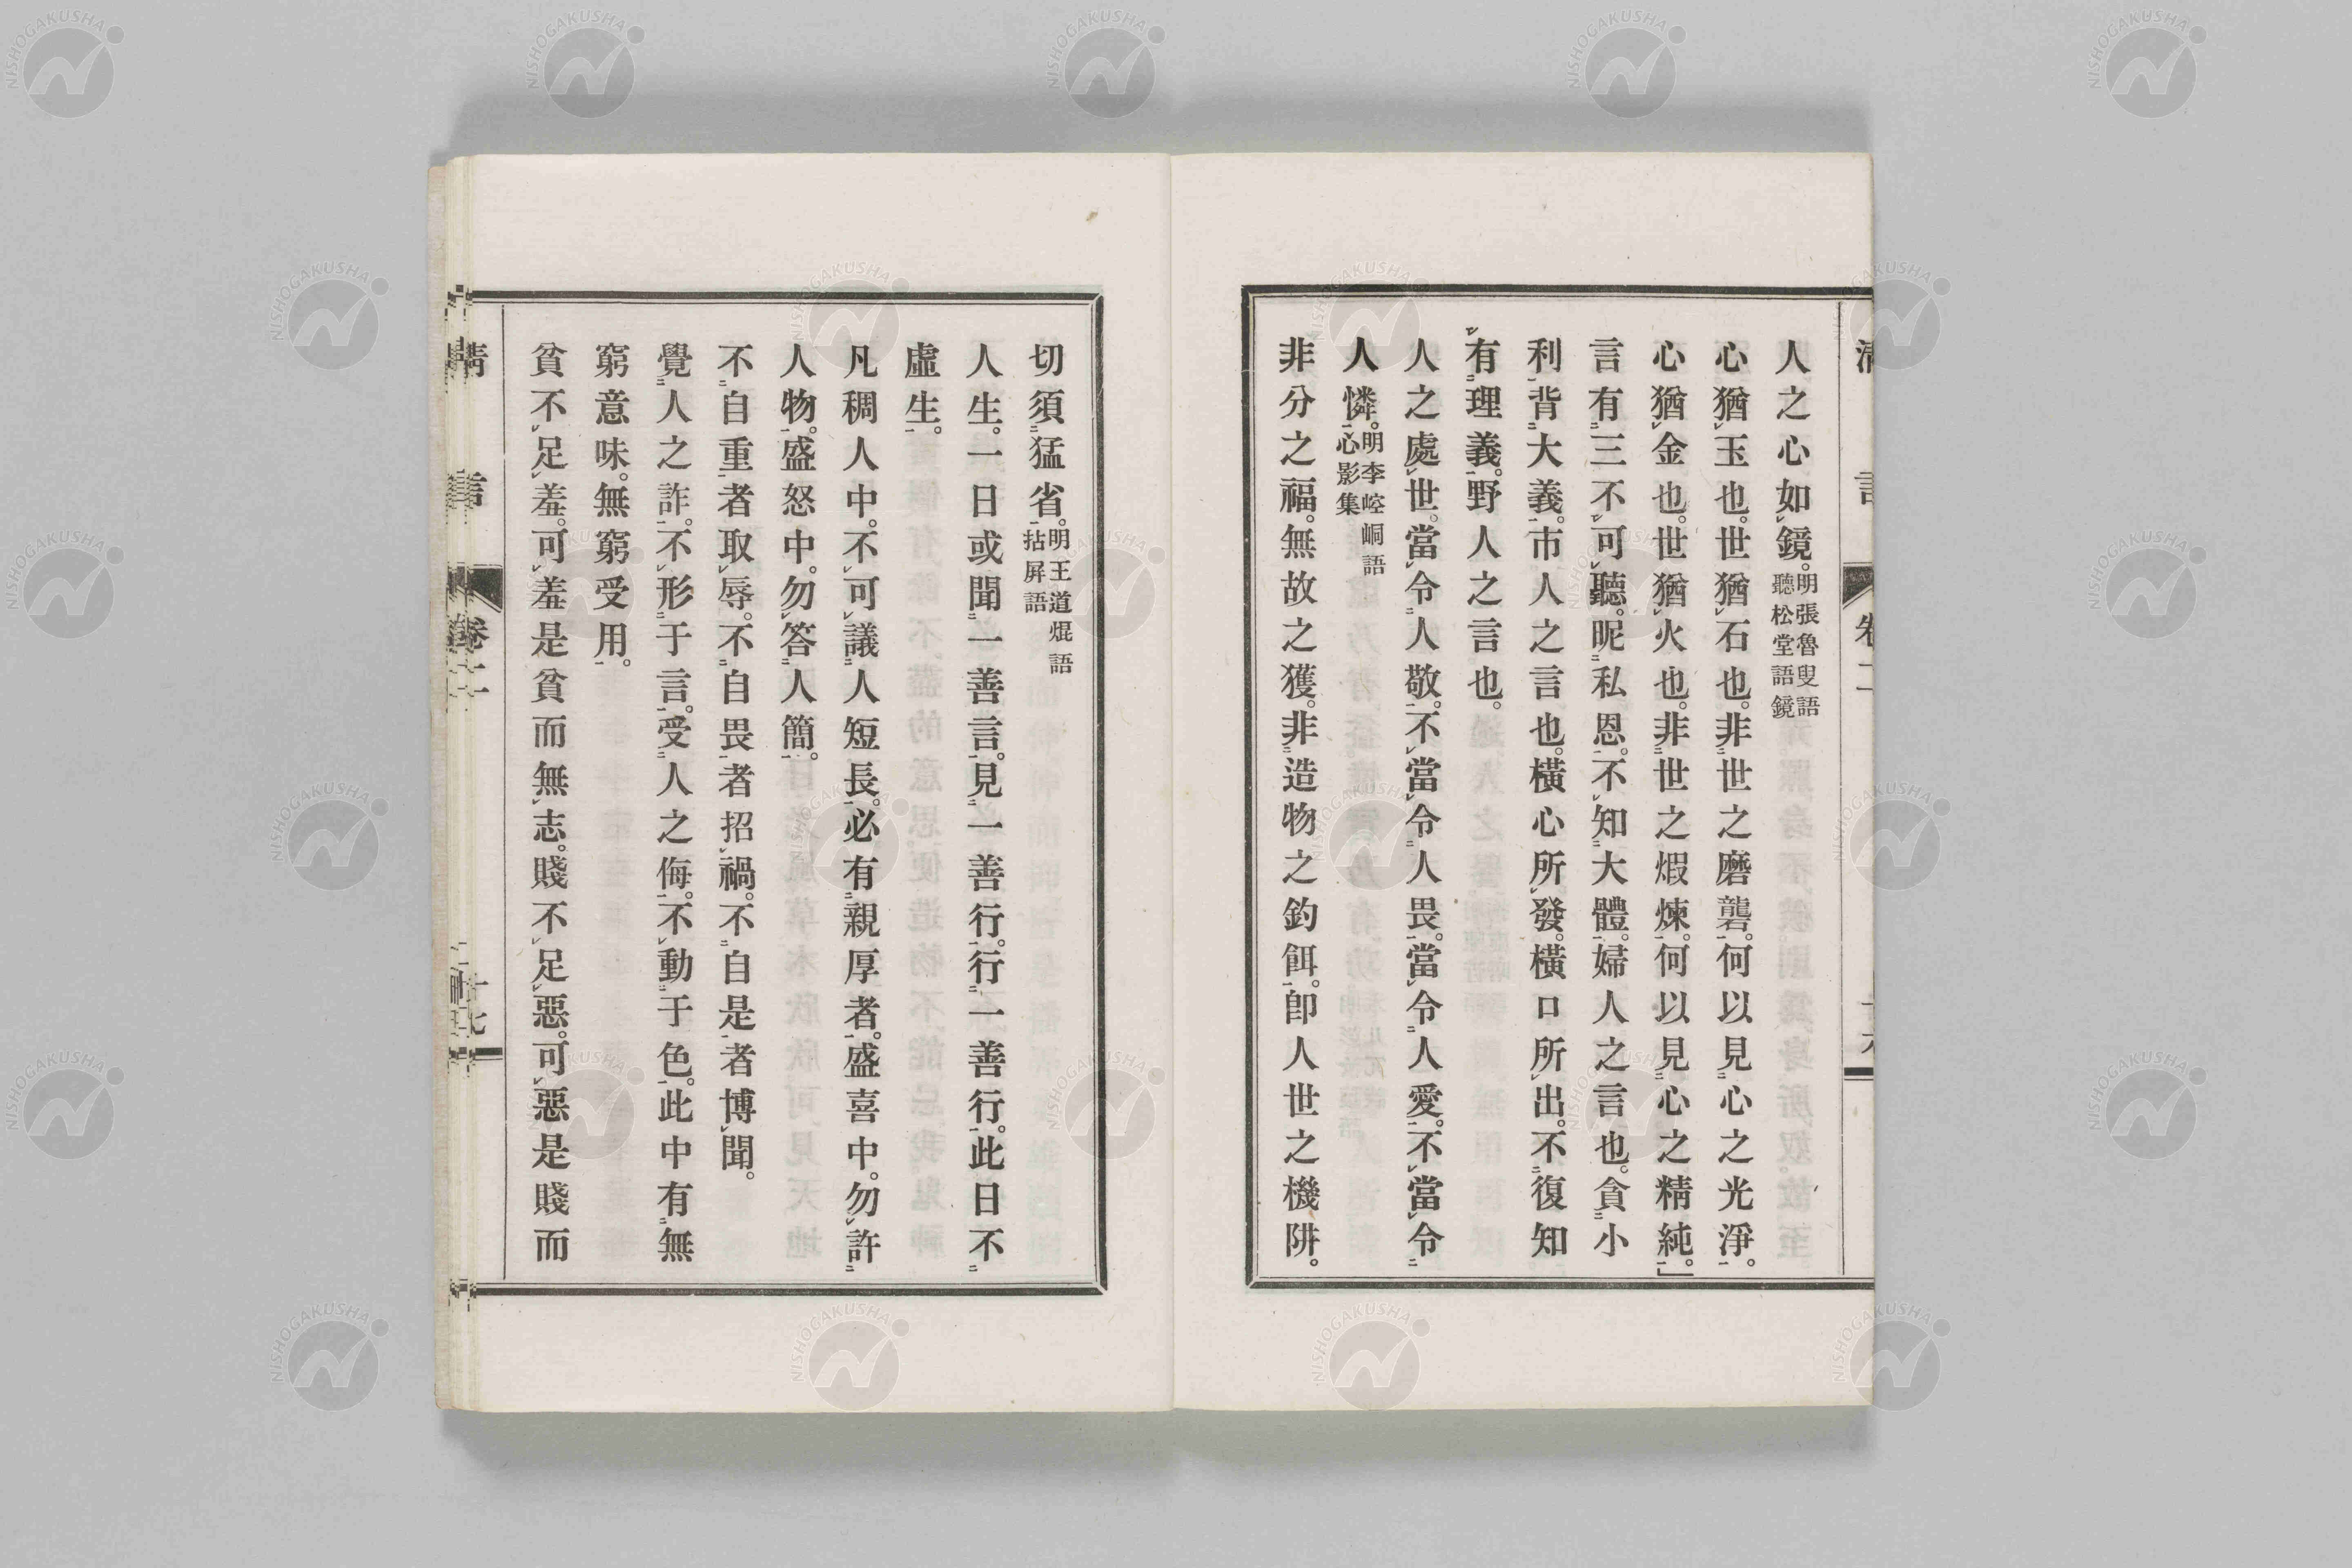 人之心如鏡。明張魯叟語聽松堂語鏡
心猶玉也。世猶石也。非世之磨礱。何以見心之光淨。
心猶金也。世猶火也。非世之煆煉。何以見心之精純。」
言有三不可聽。昵私恩。不知大體。婦人之言也。貪小
利背大義。市人之言也。橫心所發。橫口所出。不復知
有理義。野人之言也。
人之處世。當令人敬。不當令人畏。當令人愛。不當令
人憐。明李崆峒語心影集
非分之福。無故之獲。非造物之釣餌。卽人世之機阱。
切須猛省。明王道焜語拈屏語
人生。一日或聞一善言。見一善行。行一善行。此日不
虛生。
凡稠人中。不可議人短長。必有親厚者。盛喜中。勿許
人物。盛怒中。勿答人簡。
不自重者取辱。不自畏者招禍。不自是者博聞。
覺人之詐。不形于言。受人之侮。不動于色。此中有無
窮意味。無窮受用。
貧不足羞。可羞是貧而無志。賤不足惡。可惡是賤而
NISHOGAKUSHA